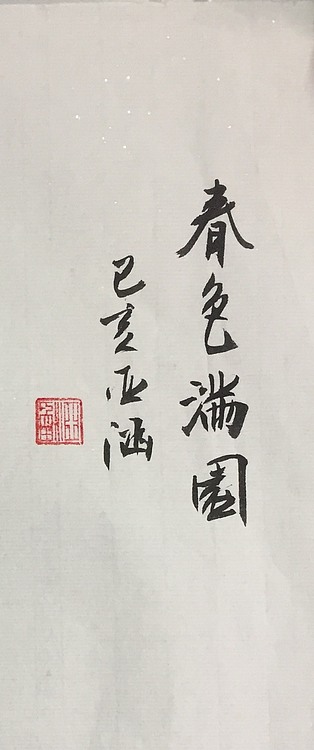 春色满園
己亥亚涵